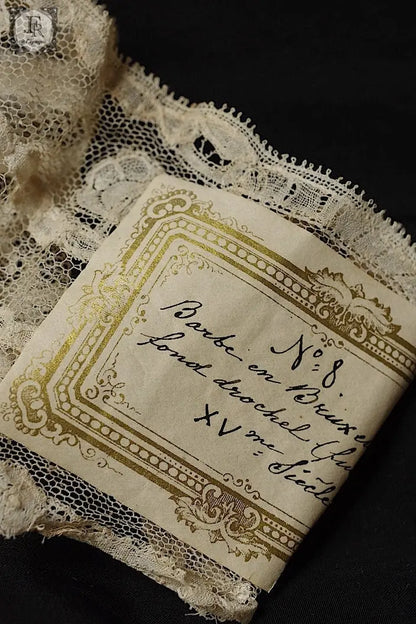 Nº 8
Barbe en Bruxe
fond drochel (fu
XVme Siècle